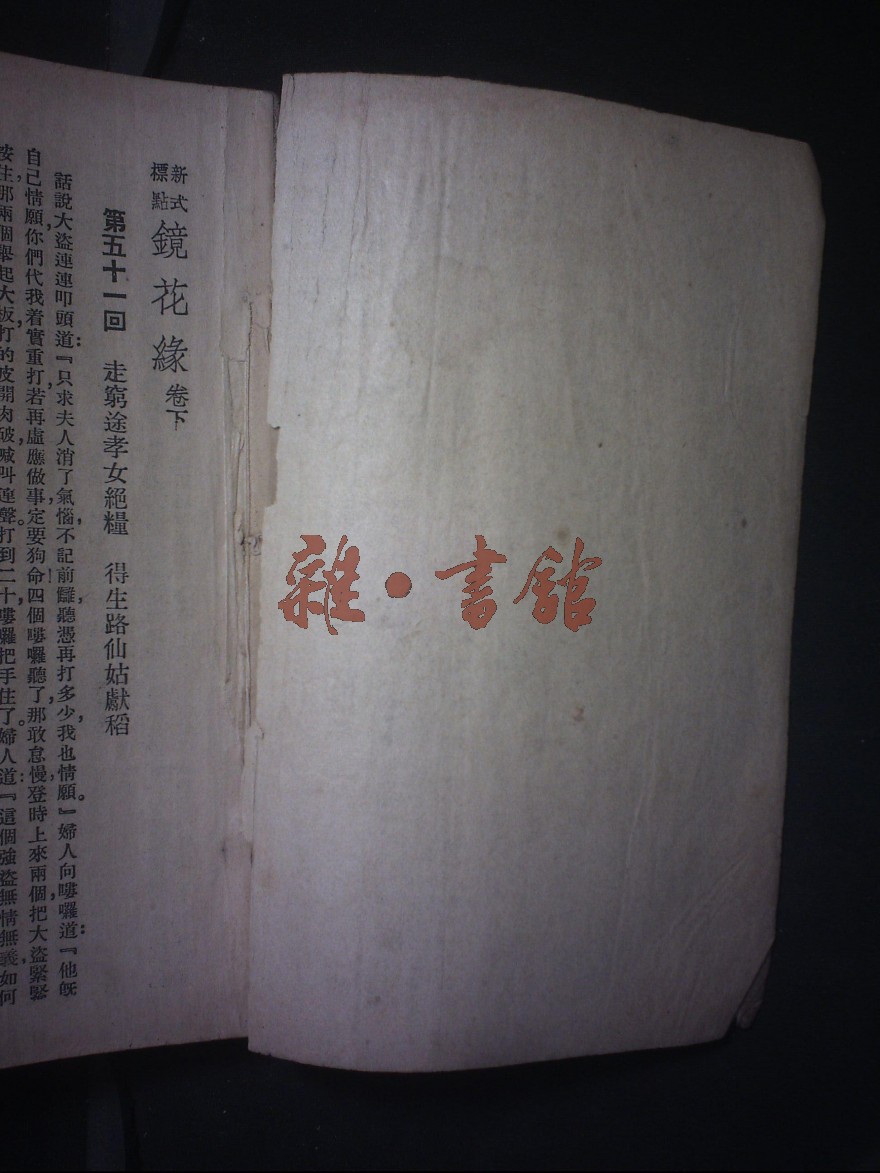 新式標點 鏡花緣 卷下
第五十一回 走窮途孝女絕糧 得生路仙姑獻稻
話說大盜連連叩頭道：『只求夫人消了氣惱，不記前讎，聽憑再打多少，我也情願。』婦人向嘍囉道：『他既
自己情願，你們代我着實重打，若再虛應做事，定要狗命！四個嘍囉聽了，那敢怠慢，登時上來兩個，把大盜緊緊
按住，那兩個舉起大板，打的皮開肉破，喊叫連聲。打到二十，嘍囉把手住了。婦人道：『這個強盜無情無義，如何
雜·書館